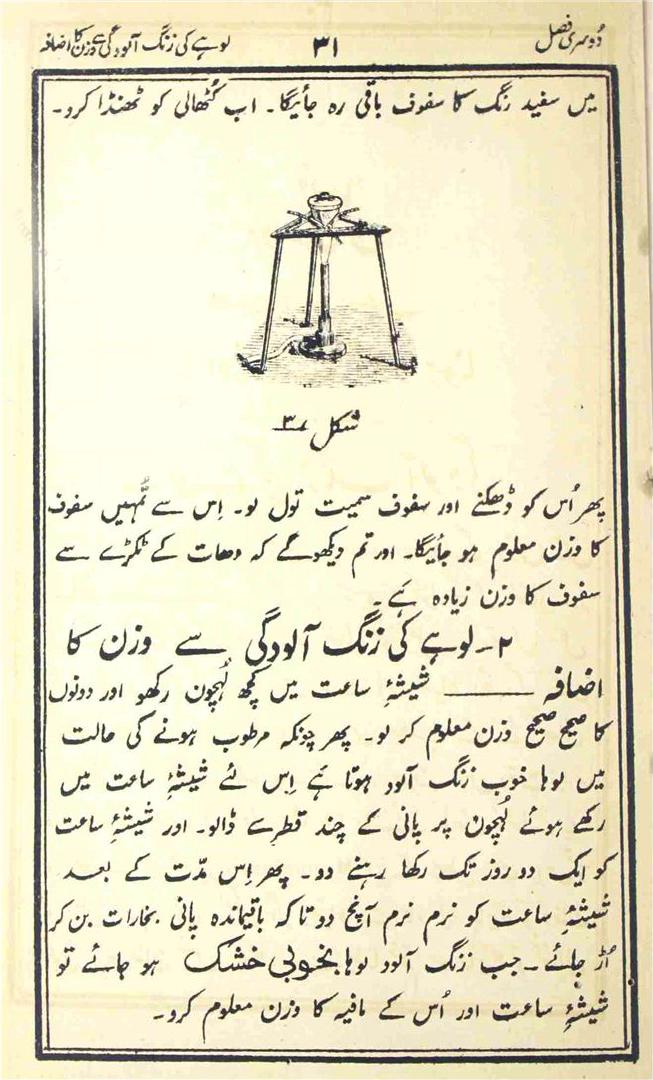 دُوسری فصل
۳۱
لوہے کی زنگ آلودگی سے وزن کا اضافہ
میں سفید رنگ کا سفوف باقی رہ جائیگا۔ اب کُٹھالی کو ٹھنڈا کرو۔
شکل ۳
پھر اُس کو ڈھکنے اور سفوف سمیت تول لو۔ اِس سے تمہیں سفوف
کا وزن معلوم ہو جائیگا۔ اور تم دیکھوگے کہ دھات کے ٹکڑے سے
سفوف کا وزن زیادہ ہَے۔
۲۔ لوہے کی زنگ آلودگی سے وزن کا
اضافہ ــــــــــ شیشۂ ساعت میں کچھ لُہچون رکھو اور دونوں
کا صحیح صحیح وزن معلوم کر لو۔ پھر چونکہ مرطوب ہونے کی حالت
میں لوہا خوب زنگ آلود ہوتا ہَے اِس لئے شیشۂ ساعت میں
رکھے ہوئے لُہچون پر پانی کے چند قطرے ڈالو۔ اور شیشۂ ساعت
کو ایک دو روز تک رکھا رہنے دو۔ پھر اِس مدّت کے بعد
شیشۂ ساعت کو نرم نرم آنچ دو تاکہ باقیماندہ پانی بخارات بن کر
اُڑ جائے۔ جب زنگ آلود لوہا بخوبی خشک ہو جائے تو
شیشۂ ساعت اور اُس کے مافیہ کا وزن معلوم کرو۔